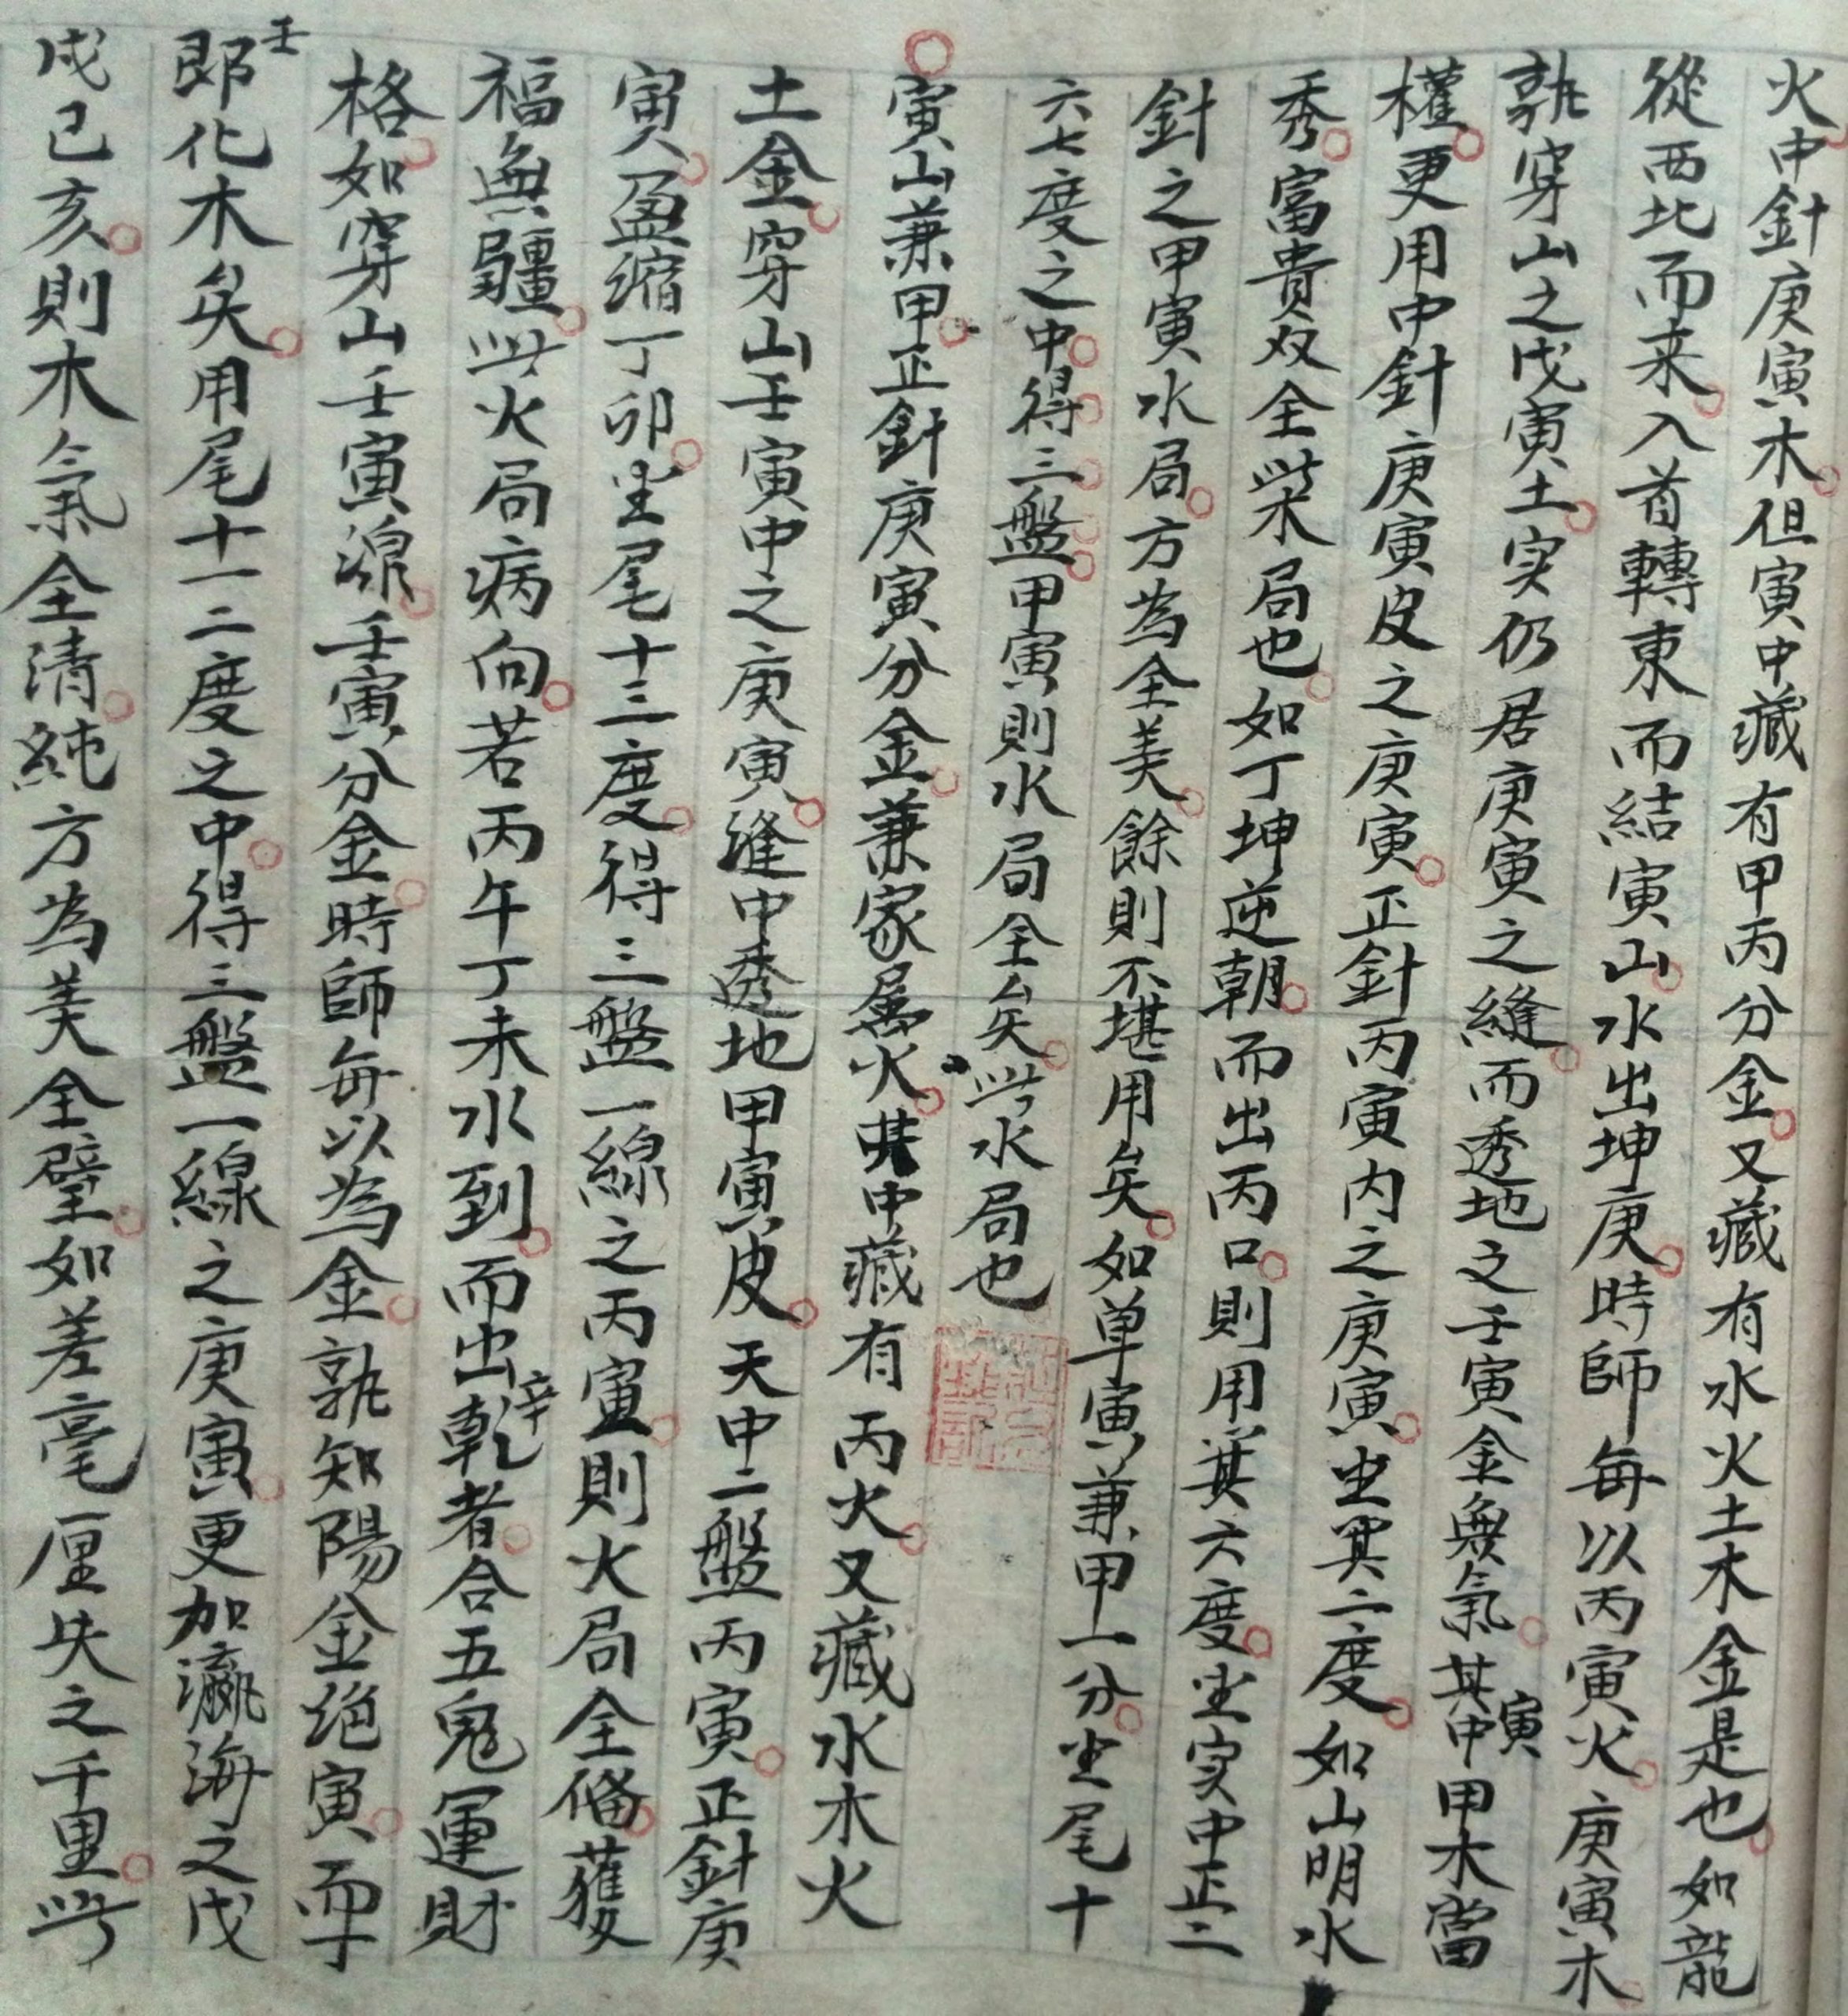 火中針庚寅木但寅中藏有甲丙分金又藏有水火土木金是也如龍
從西北而来入首轉東而結寅山水出坤庚時師每以丙寅火庚寅木
孰穿山之戊寅土実仍居庚寅之縫而透地之壬寅金無氣其中寅甲木當
權更用中針庚寅皮之庚寅正針丙寅内之庚寅坐箕二度如山明水
秀富貴双全此木局也如丁坤逆朝而出丙口則用箕六度坐実中正二
針之甲寅水局方為全美餘則不堪用矣如单寅兼甲一分坐尾十
六七度之中得三盤甲寅則水局全矣此水局也
寅山兼甲正針庚寅分金兼家属火其中藏有丙火又藏水木火
土金穿山壬寅中之庚寅縫中透地甲寅皮天中二盤丙寅正針庚
寅盈縮丁卯坐尾十三度得三盤一線之丙寅則火局全俻獲
福無疆此火局病向若丙午丁未水到而出辛乾者合五鬼運財
格如穿山壬寅源壬寅分金時師每以為金孰知陽金绝寅而丁
壬即化木矣用尾十一二度之中得三盤一線之庚寅更加瀛海之戊
戌己亥則木氣全清純方為美全璧如差毫厘失之千里此